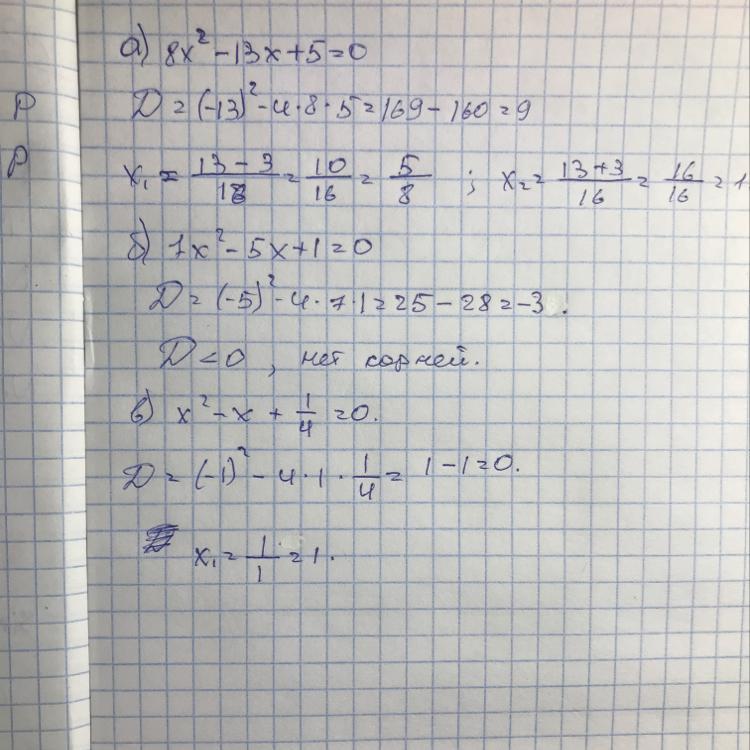 а) 8x² - 13x + 5 = 0
D = (-13)² - 4 · 8 · 5 = 169 - 160 = 9
x₁ = (13 - 3)/16 = 10/16 = 5/8 ; x₂ = (13 + 3)/16 = 16/16 = 1
б) 7x² - 5x + 1 = 0
D = (-5)² - 4 · 7 · 1 = 25 - 28 = -3.
D < 0, нет корней.
в) x² - x + 1/4 = 0.
D = (-1)² - 4 · 1 · 1/4 = 1 - 1 = 0.
x₁ = 1/1 = 1.